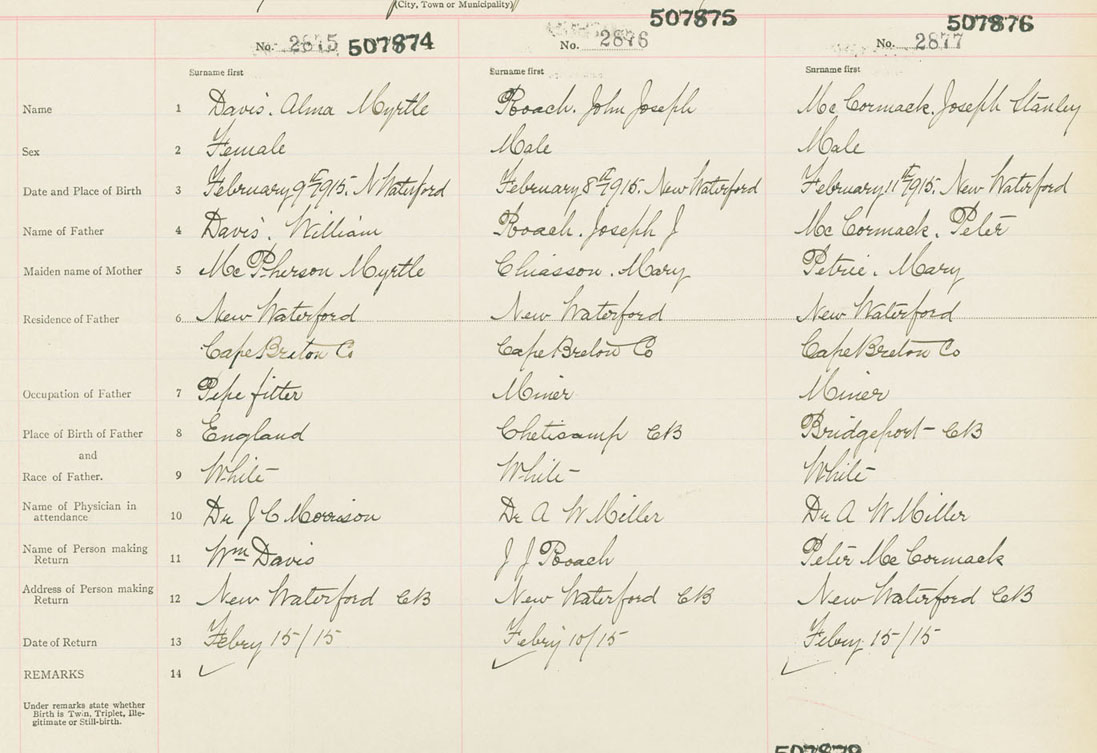 (City, Town or Municipality)
507875
507876
No. 2875 507874
No. 2876
No. 2877
Surname first
Surname first
Surname first
Name 1 Davis. Alma Myrtle Roach. John Joseph Mc Cormack. Joseph Stanley
Sex 2 Female Male Male
Date and Place of Birth 3 February 9th 1915. N Waterford February 8th 1915. New Waterford February 11th 1915. New Waterford
Name of Father 4 Davis. William Roach. Joseph J Mc Cormack. Peter
Maiden name of Mother 5 Mc Pherson Myrtle Chiasson. Mary Petrie. Mary
Residence of Father 6 New Waterford New Waterford New Waterford
Cape Breton Co Cape Breton Co Cape Breton Co
Occupation of Father 7 Pipe fitter Miner Miner
Place of Birth of Father 8 England Cheticamp CB Bridgeport CB
and
Race of Father. 9 White White White
Name of Physician in
attendance 10 Dr J C Morrison Dr A W Miller Dr A W Miller
Name of Person making
Return 11 Wm Davis J J Roach Peter Mc Cormack
Address of Person making
Return 12 New Waterford CB New Waterford CB New Waterford CB
Date of Return 13 Febry 15/15 Febry 10/15 Febry 15/15
REMARKS 14
Under remarks state whether
Birth is Twin, Triplet, Ille-
gitimate or Still-birth.